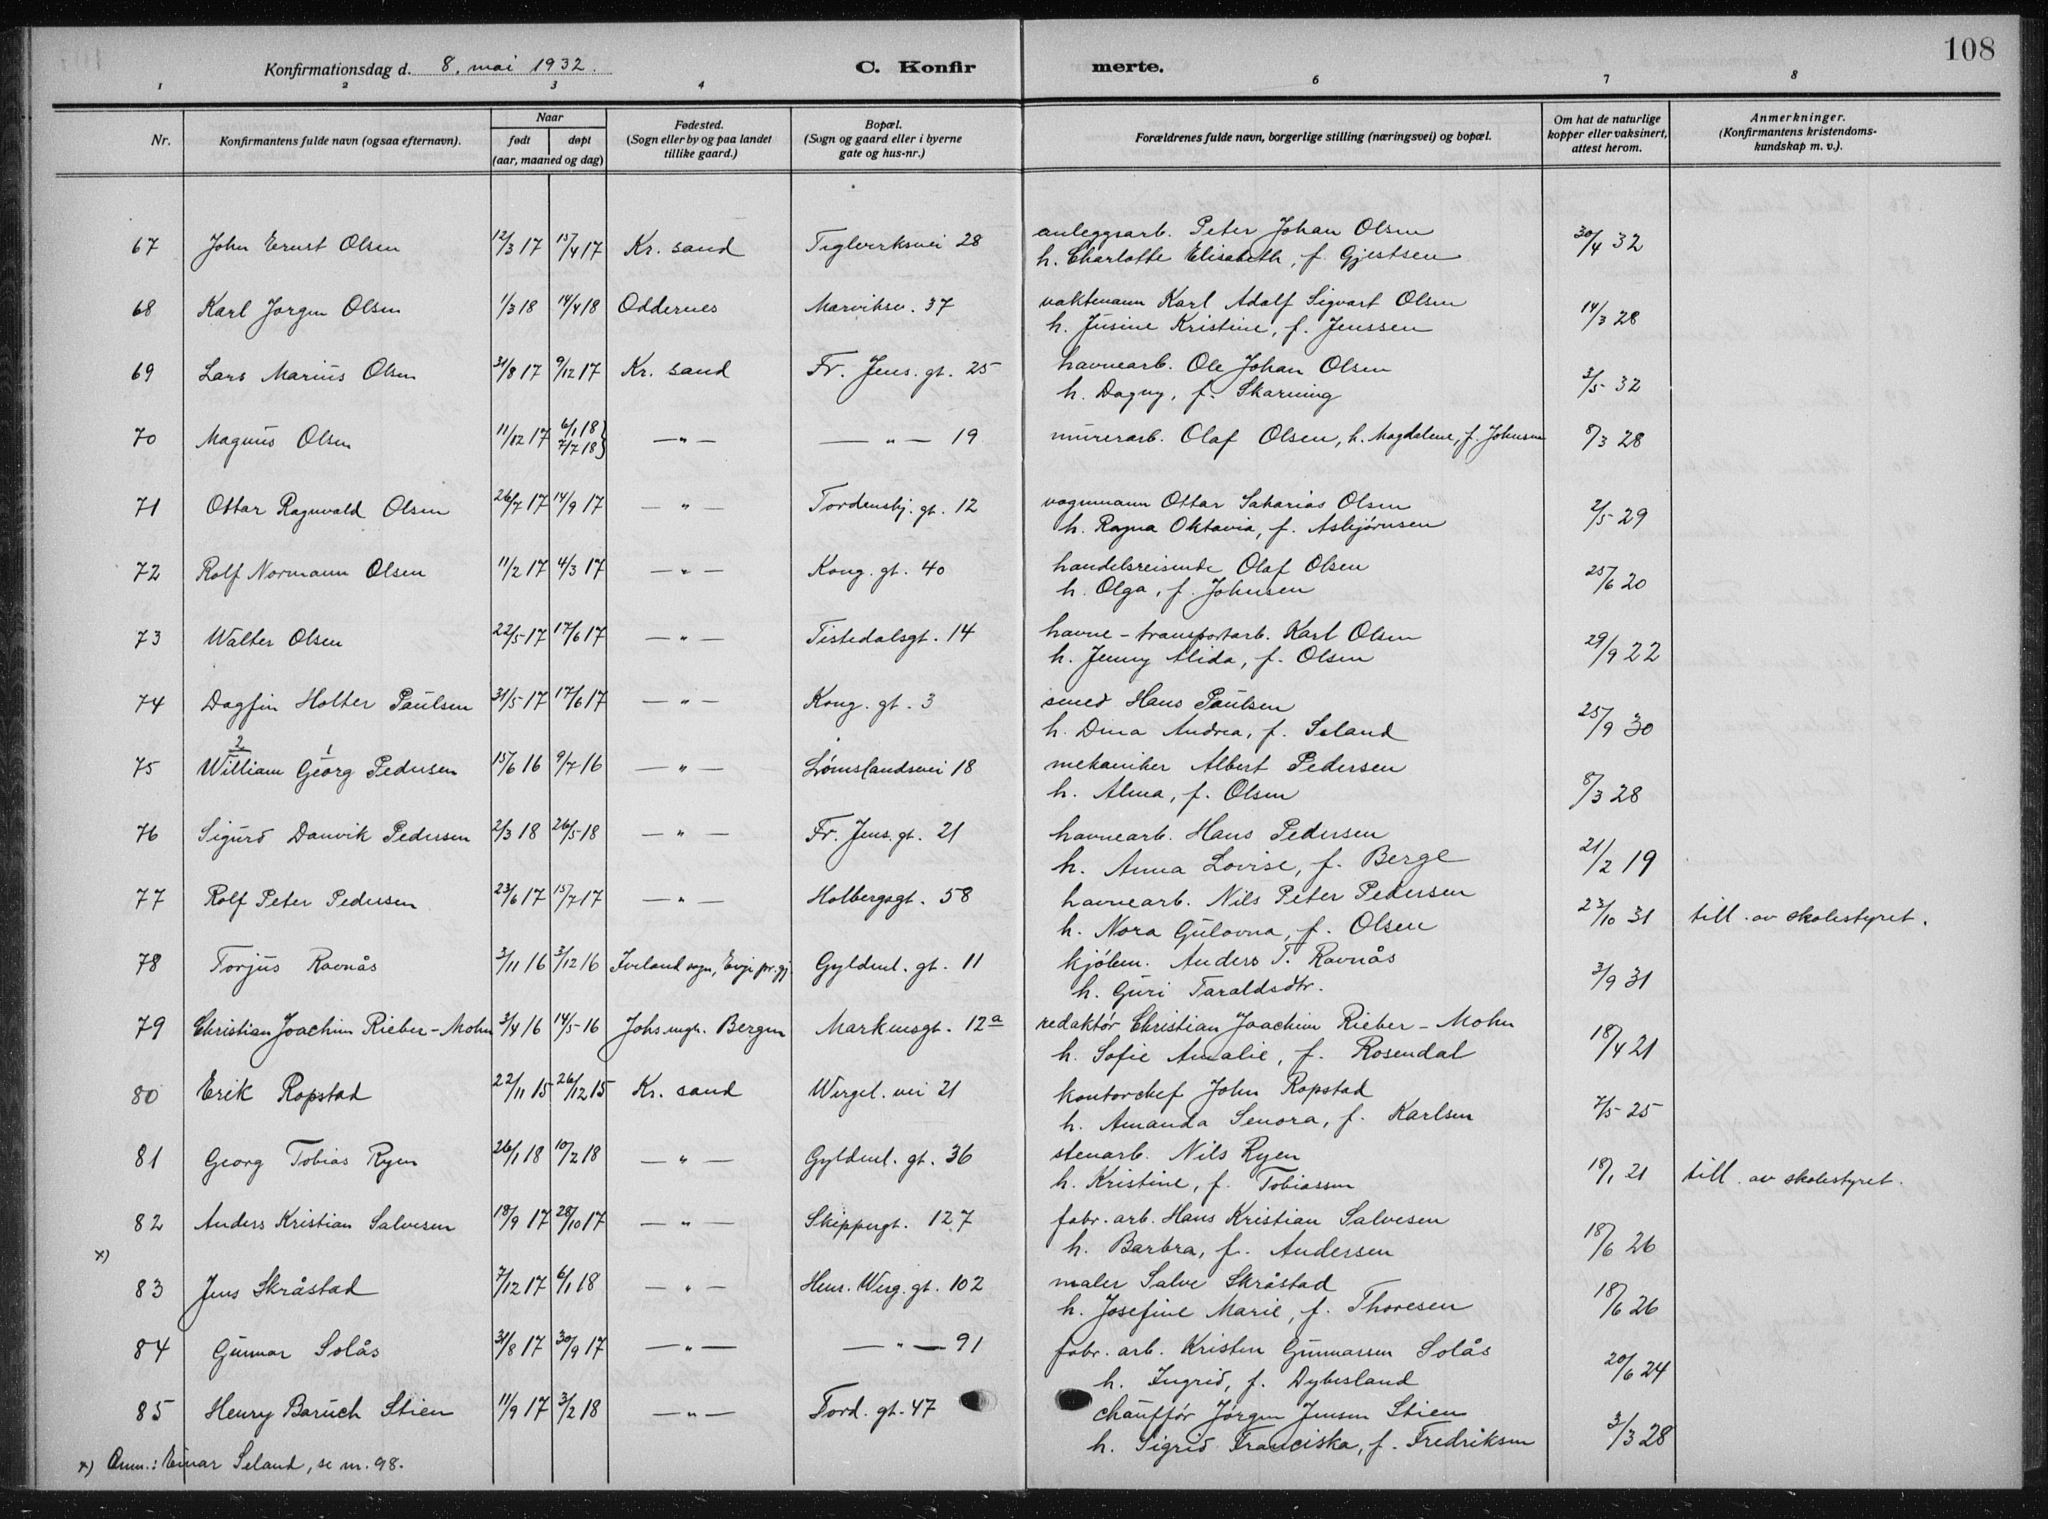 108
Konfirmationsdag d. 8. mai 1932. C. Konfirmerte.
1 2 3 4 6 7 8
Nr. Konfirmantens fulde navn (ogsaa efternavn). Naar født døpt (aar, maaned og dag) Fødested. (Sogn eller by og paa landet tillike gaard.) Bopæl. (Sogn og gaard eller i byerne gate og hus-nr.) Forældrenes fulde navn, borgerlige stilling (næringsvei) og bopæl. Om hat de naturlige kopper eller vaksinert, attest herom. Anmerkninger. (Konfirmantens kristendomskundskap m. v.).
67 John Ernst Olsen 12/3 17 15/4 17 Kr. sand Teglverksvei 28 anleggsarb. Peter Johan Olsen 30/4 32
h. Charlotte Elisabeth, f. Gjertsen
68 Karl Jørgen Olsen 1/3 18 14/4 18 Oddernes Marviksv. 37 vaktmann Karl Adolf Sigvart Olsen 14/3 28
h. Jusine Kristine, f. Jenssen
69 Lars Marius Olsen 31/8 17 9/12 17 Kr. sand Fr. Jens. gt. 25 havnearb. Ole Johan Olsen 3/5 32
h. Dagny, f. Skarning
70 Magnus Olsen 11/12 17 6/1 18 } 7/7 18 } — " — — " — 19 murerarb. Olaf Olsen, h. Magdalene, f. Johnsen 8/3 28
71 Ottar Ragnvald Olsen 26/7 17 14/9 17 — " — Tordenskj. gt. 12 vognmann Ottar Sakarias Olsen 2/5 29
h. Ragna Oktavia, f. Asbjørnsen
72 Rolf Normann Olsen 11/2 17 4/3 17 — " — Kong. gt. 40 handelsreisende Olaf Olsen 25/6 20
h. Olga, f. Johnsen
73 Walter Olsen 22/5 17 17/6 17 — " — Tistedalsgt. 14 havne-transportarb. Karl Olsen 29/9 22
h. Jenny Alida, f. Olsen
74 Dagfin Holter Paulsen 31/5 17 17/6 17 — " — Kong. gt. 3 smed Hans Paulsen 25/9 30
h. Dina Andrea, f. Seland
2 1
75 William Georg Pedersen 15/6 16 9/7 16 — " — Lømslandsvei 18 mekaniker Albert Pedersen 8/3 28
h. Alma, f. Olsen
76 Sigurd Danvik Pedersen 2/3 18 26/5 18 — " — Fr. Jens. gt. 21 havnearb. Hans Pedersen 21/2 19
h. Anna Lovise, f. Berge
77 Rolf Peter Pedersen 23/6 17 15/7 17 — " — Holbergsgt. 58 havnearb. Nils Peter Pedersen 23/10 31 till. av skolestyret.
h. Nora Gulovna, f. Olsen
78 Torjus Ravnås 3/11 16 3/12 16 Iveland sogn, Evje pr.gj. Gyldenl. gt. 11 kjøbm. Anders T. Ravnås 3/9 31
h. Guri Taraldsdtr.
79 Christian Joachim Rieber-Mohn 3/4 16 14/5 16 Johs. mgh. Bergen Markensgt. 12a redaktør Christian Joachim Rieber-Mohn 18/4 21
h. Sofie Amalie, f. Rosendal
80 Erik Ropstad 22/11 15 26/12 15 Kr. sand Wergel. vei 21 kontorchef John Ropstad 7/5 25
h. Amanda Senora, f. Karlsen
81 Georg Tobias Ryen 26/1 18 10/2 18 — " — Gyldenl. gt. 36 stenarb. Nils Ryen 18/1 21 till. av skolestyret.
h. Kristine, f. Tobiassen
82 Anders Kristian Salvesen 18/9 17 28/10 17 — " — Skippergt. 127 fabr. arb. Hans Kristian Salvesen 18/6 26
x) h. Barbra, f. Andersen
83 Jens Skråstad 7/12 17 6/1 18 — " — Henr. Werg. gt. 102 maler Salve Skråstad 18/6 26
h. Josefine Marie, f. Thoresen
84 Gunnar Solås 31/8 17 30/9 17 — " — — " — 91 fabr. arb. Kristen Gunnarsen Solås 20/6 24
h. Ingrid, f. Dybesland
85 Henry Baruch Stien 11/9 17 3/2 18 — " — Tord. gt. 47 chauffør Jørgen Jensen Stien 3/3 28
h. Sigrid Franciska, f. Fredriksen
x) Anm.: Einar Seland, se nr. 98.